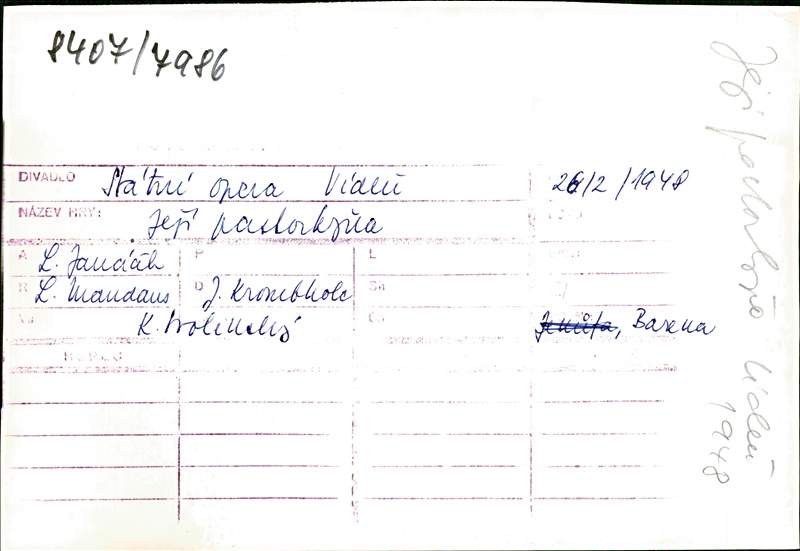 8407/7986
DIVADLO Státní opera Vídeň 26/2/1948
NÁZEV HRY: Její pastorkyňa
A L. Janáček P L
R L. Mandaus D J. Krombholc
K.
Jenůfa, Barena
Její pastorkyňa Vídeň
1948